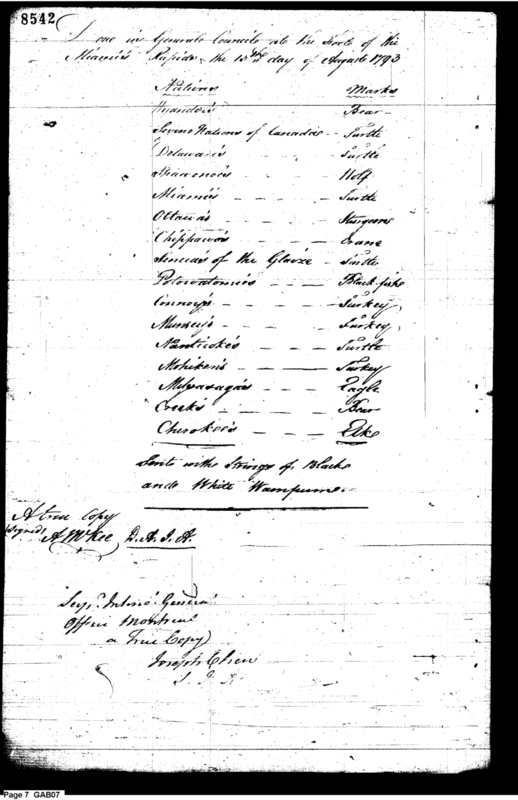 8542
done in General Council at the Foot of the
Miamis Rapids the 13th day of August 1793
Nations Marks
Wyandots Bear
Seven Nations of Canada Turtle
Delawares Turtle
Shawanoes Wolf
Miamis Turtle
Ottawas Sturgeons
Chippawas Crane
Senecas of the Glaize Turtle
Potowatomies Black fish
Connoys Turkey
Munseys Turkey
Nanticokes Turtle
Mohikens Turkey
Missasagas Eagle
Creeks Bear
Cherokees Elke
Sent with Strings of Black
and White Wampum.
A true Copy
(signed) A McKee D. A. I. A.
Office Montreal
a True Copy
Joseph Chew
S. I. A.
Page 7 GAB07